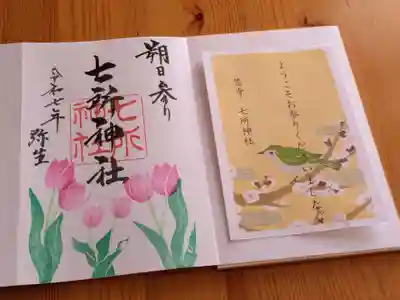 朔日参り
七所神社
七所
神社
令和七年
弥生
ようこそお参りくださいました
笠寺 七所神社